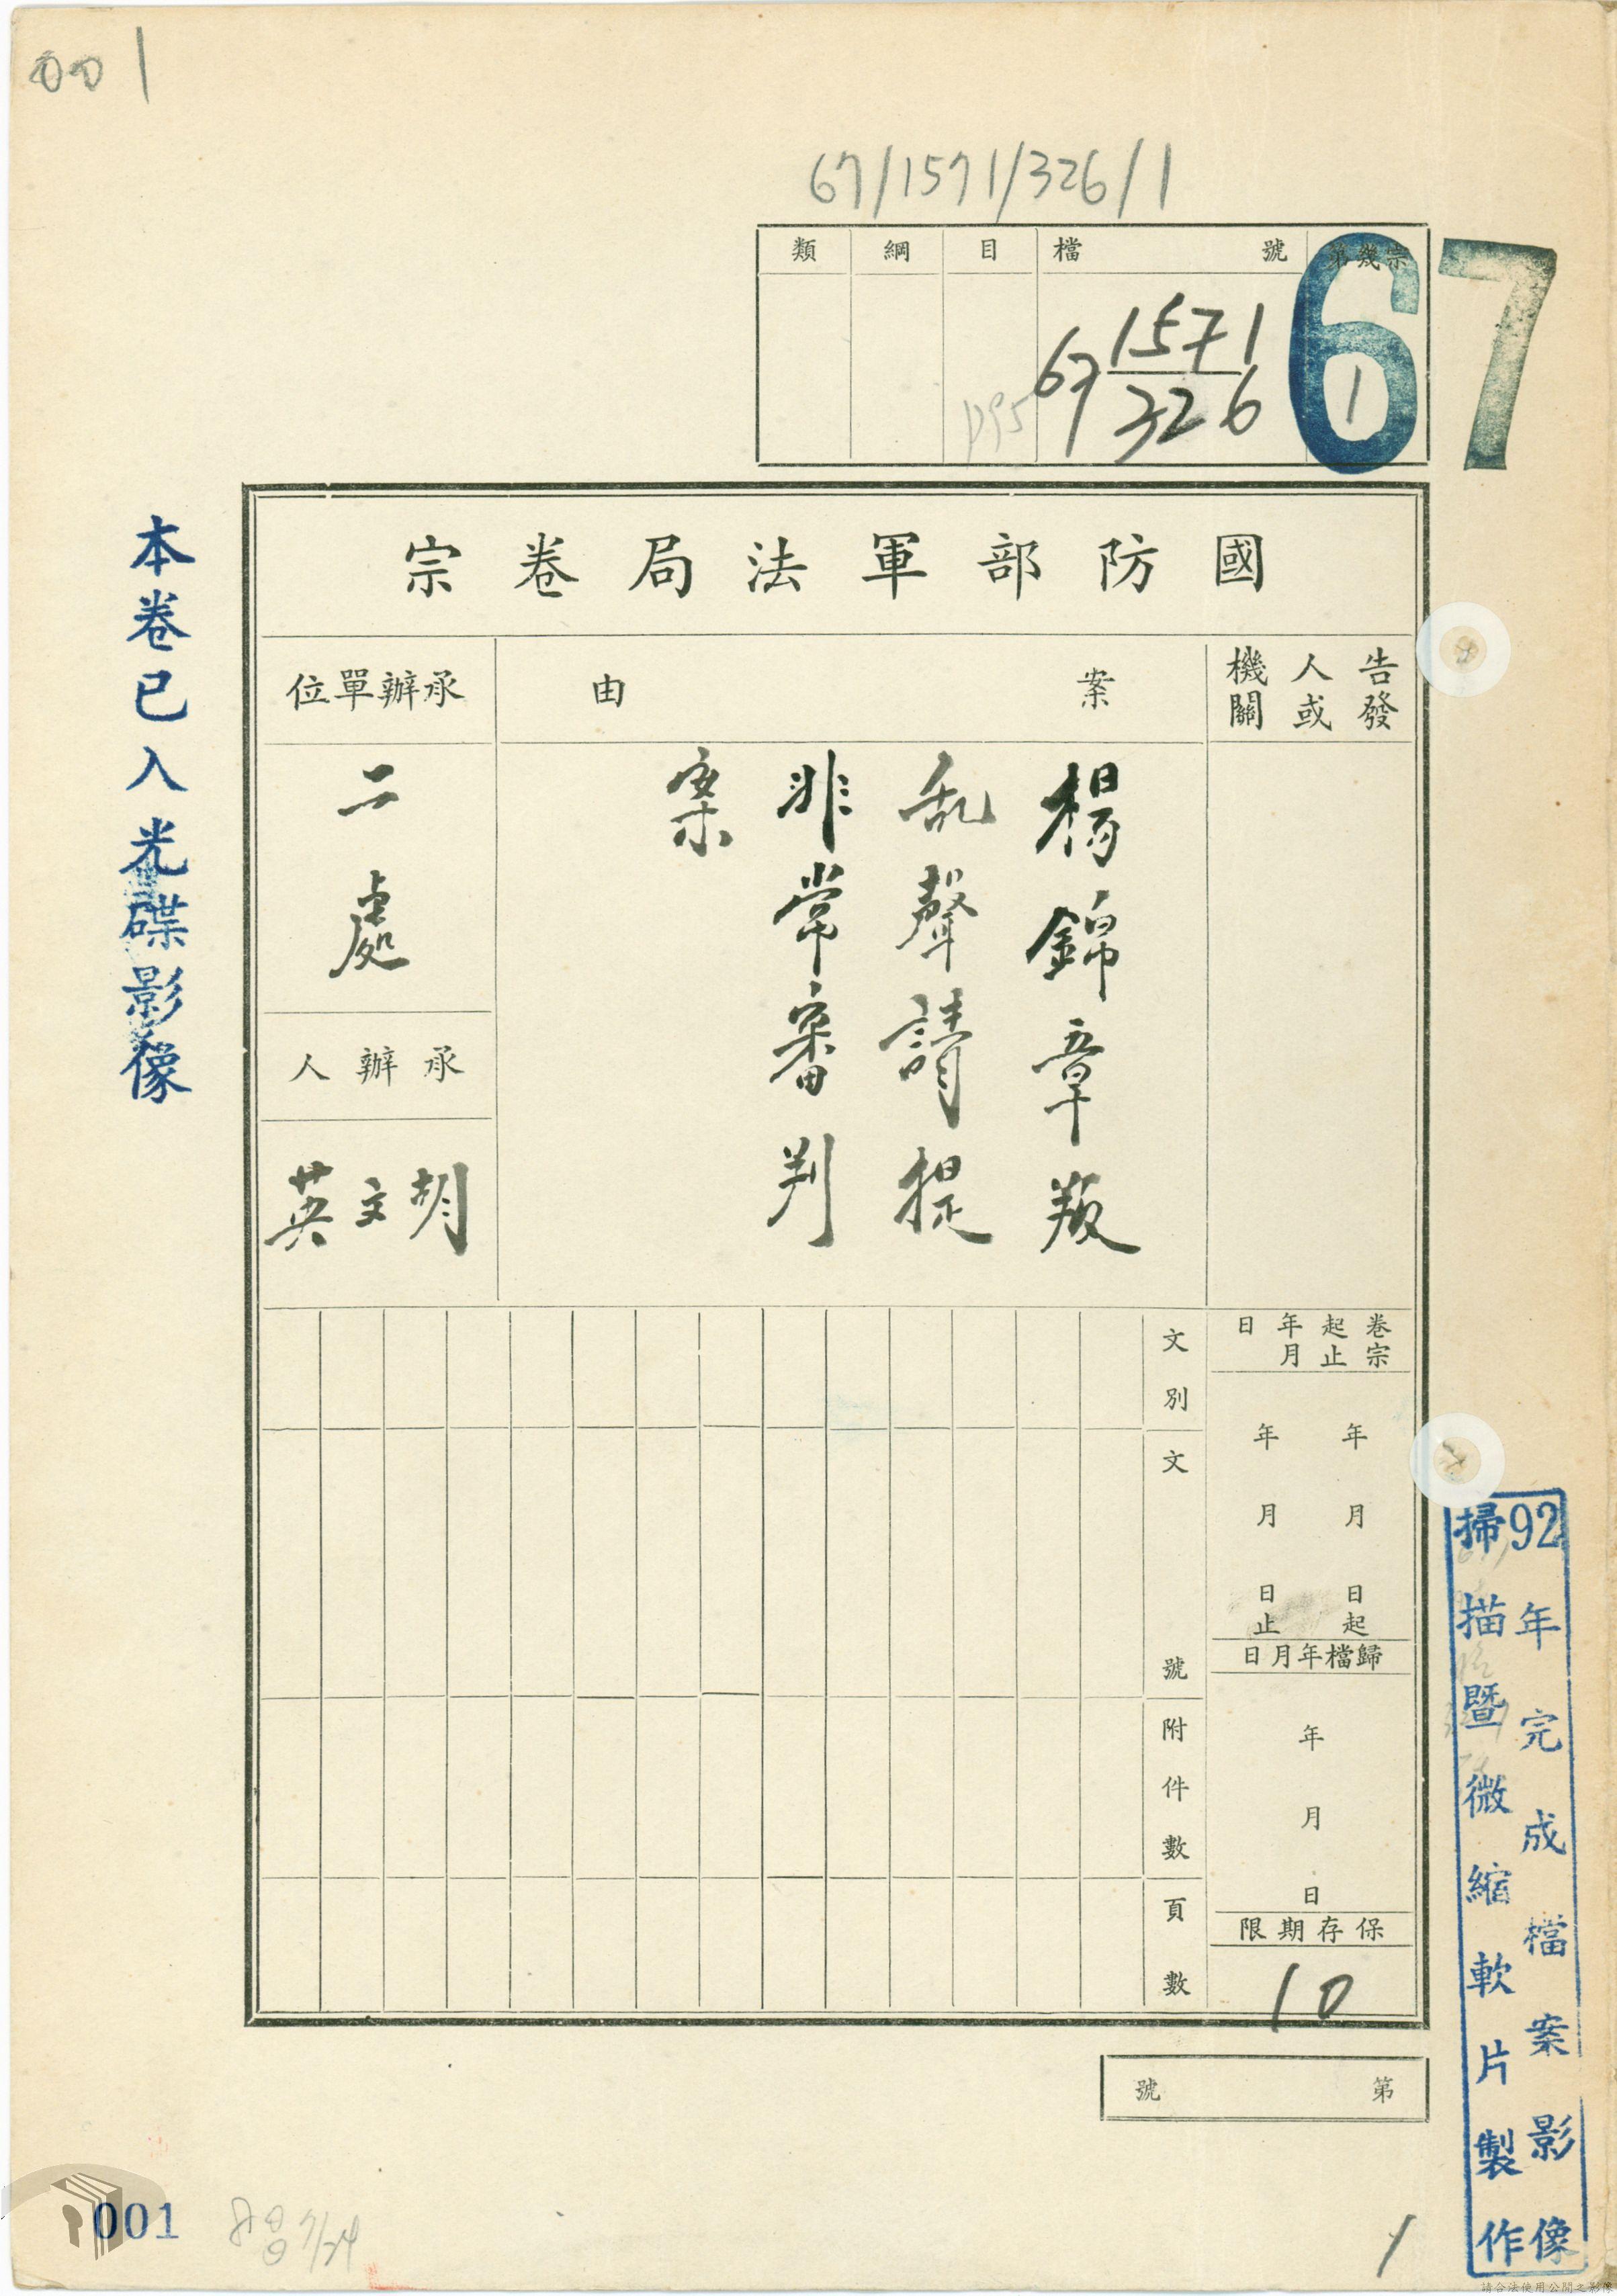 001
67/1571/326/1
類 綱 目 檔 號 第幾宗
67 1571
326
1
67
國防部軍法局卷宗
告發人或機關
案由
承辦單位
楊錦章叛
乱聲請提
非常審判
案
二處
承辦人
胡文英
卷宗起止年月日
年 月 日起
年 月 日止
歸檔年月日
年 月 日
保存期限
10
文別
文 號
附件數
頁數
第 號
本卷已入光碟影像
92年完成檔案影像
掃描暨微縮軟片製作
001
7/24
1
請合法使用公開之影像